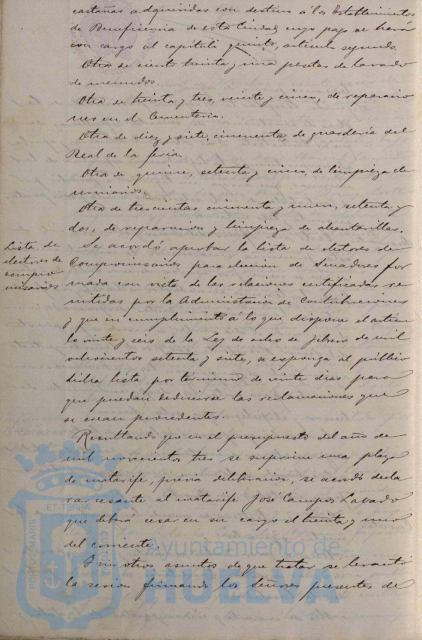 castañas adquiridas con destino á los Establecimientos
de Beneficencia de esta Ciudad, cuyo pago se hará
con cargo al capítulo quinto, artículo segundo.
Otra de ciento treinta y una pesetas de lavado
de menudos.
Otra de treinta y tres, veinte y cinco, de reparacio
nes en el Cementerio.
Otra de diez y siete, cincuenta, de guardería del
Real de la feria.
Otra de quince, setenta y cinco, de limpieza de
urinarios.
Otra de trescientas cincuenta y nueve, setenta y
dos, de reparacion y limpieza de alcantarillas.
Lista de
electores de
compro
misarios
Se acordó aprobar la lista de electores de
Compromisarios para eleccion de Senadores for
mada con vista de las relaciones certificadas re
mitidas por la Administración de Contribuciones
y que en cumplimiento á lo que dispone el artícu
lo veinte y seis de la Ley de ocho de febrero de mil
ochocientos setenta y siete, se exponga al público
dicha lista por término de veinte dias para
que puedan deducirse las reclamaciones que
se crean procedentes.
Resultando que en el presupuesto del año de
mil novecientos tres se suprime una plaza
de matarife, previa deliberacion, se acordó decla
rar cesante al matarife José Campos Lavado
que deberá cesar en su cargo el treinta y uno
del corriente.
Sin otros asuntos de que tratar se levantó
la sesion firmando los Señores presentes de
Ayuntamiento de
HUELVA